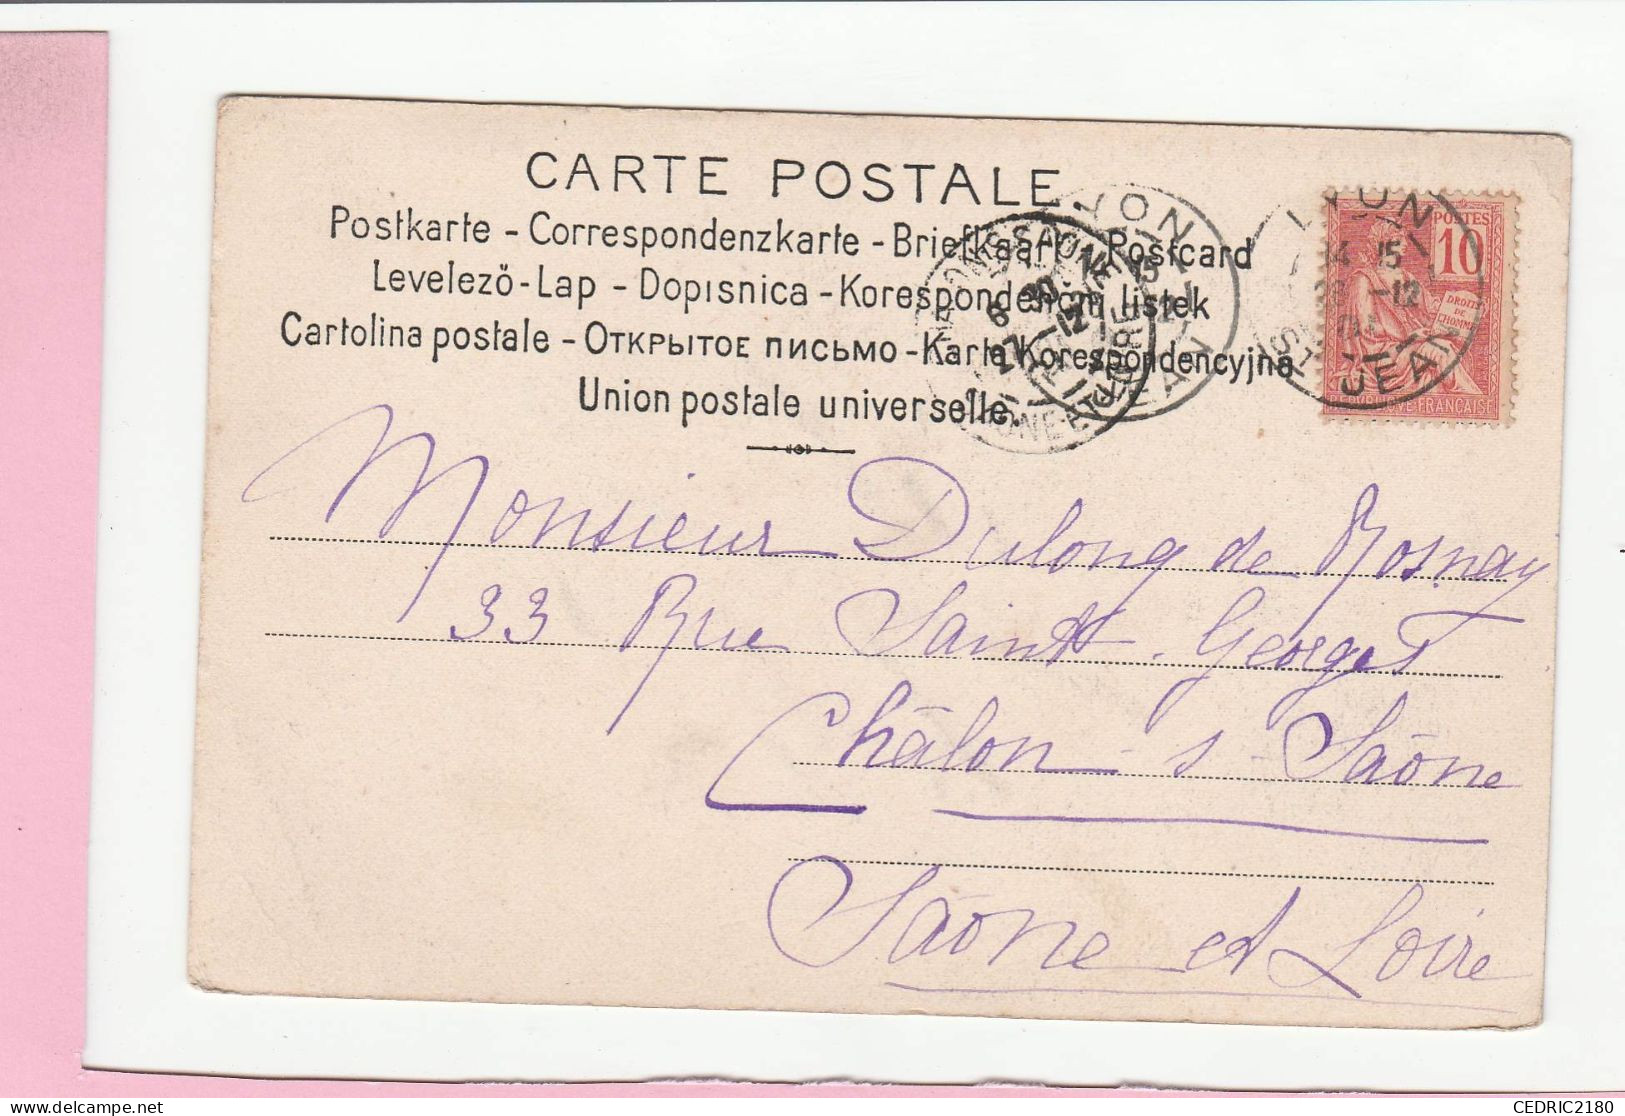 CARTE POSTALE
Postkarte - Correspondenzkarte - Briefkaart - Postcard
Levelező-Lap - Dopisnica - Korespondencni listek
Cartolina postale - Открытое письмо - Karta Korespondencyjna
Union postale universelle.
LYON
15
-12
ST JEAN
POSTES
10
DROITS
DE
L'HOMME
REPUBLIQUE FRANÇAISE
Monsieur Dulong de Rosnay
33 Rue Saint Georges
Châlon s Saône
Saône et Loire
CEDRIC2180